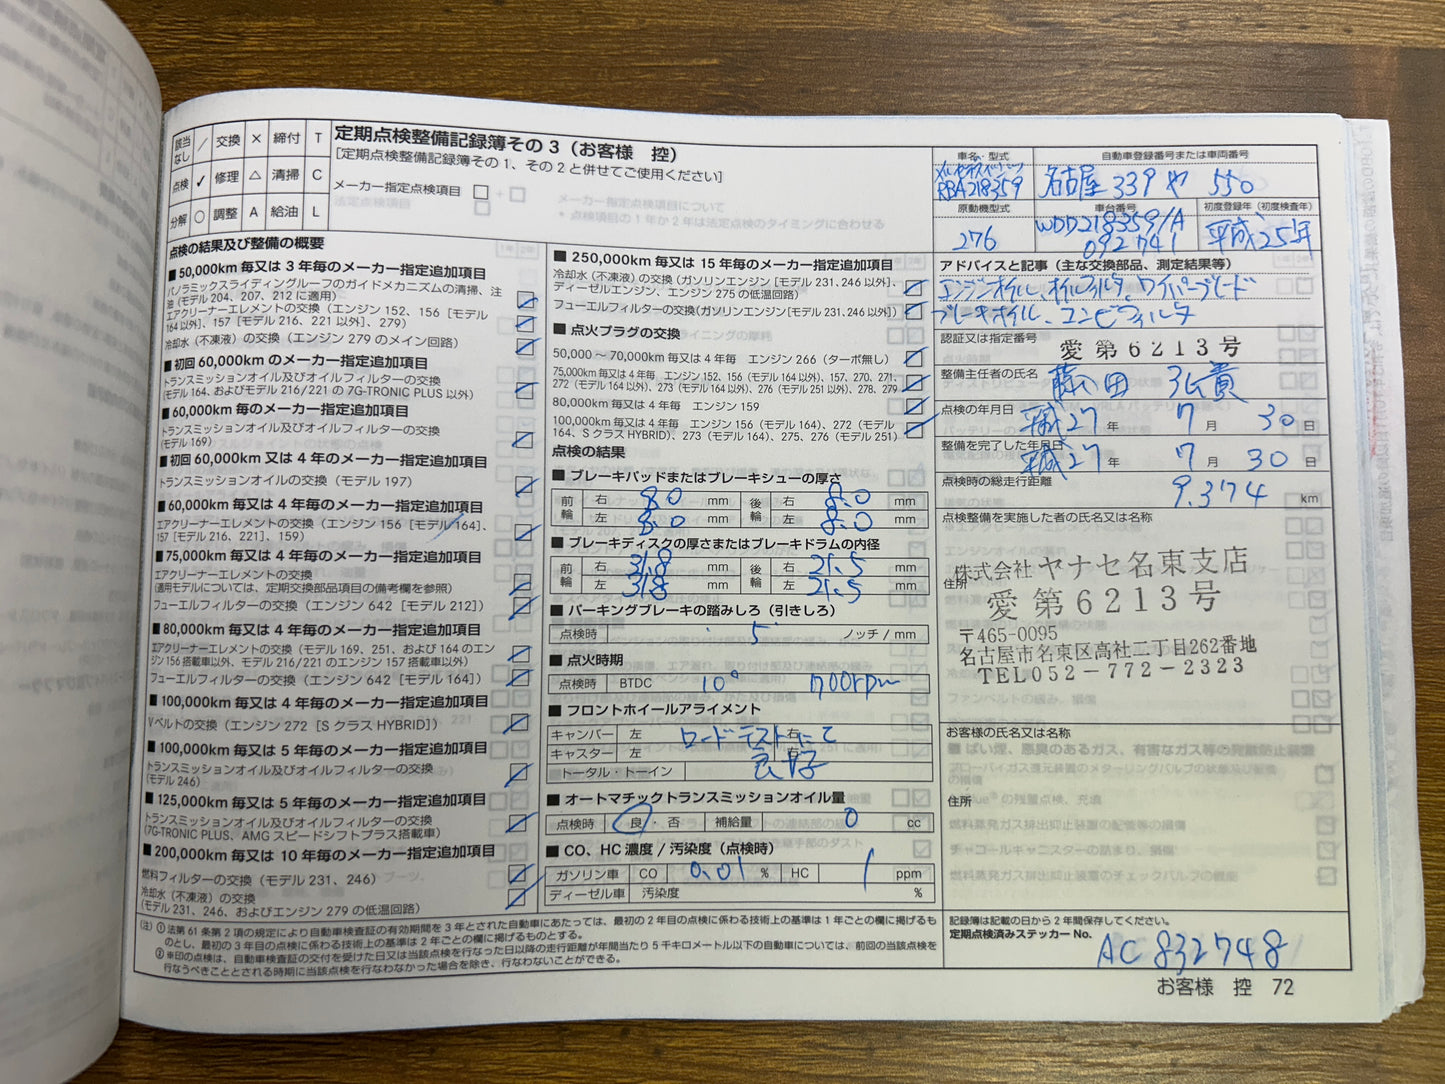 該当なし / 交換 × 締付 T
点検 ✓ 修理 △ 清掃 C
分解 ○ 調整 A 給油 L
定期点検整備記録簿その3（お客様 控）
［定期点検整備記録簿その1、その2と併せてご使用ください］
メーカー指定点検項目 □ + □
法定点検項目 □
メーカー指定点検項目について
* 点検項目の1年か2年は法定点検のタイミングに合わせる
点検の結果及び整備の概要
■ 50,000km 毎又は 3 年毎のメーカー指定追加項目
パノラミックスライディングルーフのガイドメカニズムの清掃、注
油（モデル 204、207、212 に適用）
エアクリーナーエレメントの交換（エンジン 152、156［モデル
164 以外］、157［モデル 216、221 以外］、279）
冷却水（不凍液）の交換（エンジン 279 のメイン回路）
■ 初回 60,000km のメーカー指定追加項目
トランスミッションオイル及びオイルフィルターの交換
（モデル 164、およびモデル 216/221 の 7G-TRONIC PLUS 以外）
■ 60,000km 毎のメーカー指定追加項目
トランスミッションオイル及びオイルフィルターの交換
（モデル 169）
■ 初回 60,000km 又は 4 年毎のメーカー指定追加項目
トランスミッションオイルの交換（モデル 197）
■ 60,000km 毎又は 4 年毎のメーカー指定追加項目
エアクリーナーエレメントの交換（エンジン 156［モデル 164］、
157［モデル 216、221］、159）
■ 75,000km 毎又は 4 年毎のメーカー指定追加項目
エアクリーナーエレメントの交換
（適用モデルについては、定期交換部品項目の備考欄を参照）
フューエルフィルターの交換（エンジン 642［モデル 212］）
■ 80,000km 毎又は 4 年毎のメーカー指定追加項目
エアクリーナーエレメントの交換（モデル 169、251、および 164 のエン
ジン 156 搭載車以外、モデル 216/221 のエンジン 157 搭載車以外）
フューエルフィルターの交換（エンジン 642［モデル 164］）
■ 100,000km 毎又は 4 年毎のメーカー指定追加項目
V ベルトの交換（エンジン 272［S クラス HYBRID］）
■ 100,000km 毎又は 5 年毎のメーカー指定追加項目
トランスミッションオイル及びオイルフィルターの交換
（モデル 246）
■ 125,000km 毎又は 5 年毎のメーカー指定追加項目
トランスミッションオイル及びオイルフィルターの交換
（7G-TRONIC PLUS、AMG スピードシフトプラス搭載車）
■ 200,000km 毎又は 10 年毎のメーカー指定追加項目
燃料フィルターの交換（モデル 231、246）
冷却水（不凍液）の交換
（モデル 231、246、およびエンジン 279 の低温回路）
■ 250,000km 毎又は 15 年毎のメーカー指定追加項目
冷却水（不凍液）の交換（ガソリンエンジン［モデル 231、246 以外］、
ディーゼルエンジン、エンジン 275 の低温回路）
フューエルフィルターの交換（ガソリンエンジン［モデル 231、246 以外］）
■ 点火プラグの交換
50,000 〜 70,000km 毎又は 4 年毎　エンジン 266（ターボ無し）
75,000km 毎又は 4 年毎　エンジン 152、156（モデル 164 以外）、157、270、271、
272（モデル 164 以外）、273（モデル 164 以外）、276（モデル 251 以外）、278、279
80,000km 毎又は 4 年毎　エンジン 159
100,000km 毎又は 4 年毎　エンジン 156（モデル 164）、272（モデル
164、S クラス HYBRID）、273（モデル 164）、275、276（モデル 251）
点検の結果
■ ブレーキパッドまたはブレーキシューの厚さ
前輪 右 8.0 mm 後輪 右 8.0 mm
左 8.0 mm 左 8.0 mm
■ ブレーキディスクの厚さまたはブレーキドラムの内径
前輪 右 31.8 mm 後輪 右 21.5 mm
左 31.8 mm 左 21.5 mm
■ パーキングブレーキの踏みしろ（引きしろ）
点検時 5 ノッチ / mm
■ 点火時期
点検時 BTDC 10° 700rpm
■ フロントホイールアライメント
キャンバー 左 右
キャスター 左 右
トータル・トーイン
ロードテストにて
良好
■ オートマチックトランスミッションオイル量
点検時 良・否 補給量 0 cc
■ CO、HC 濃度 / 汚染度（点検時）
ガソリン車 CO 0.01 % HC 1 ppm
ディーゼル車 汚染度 %
車名・型式 自動車登録番号または車両番号
メルセデスベンツ
RBA218359 名古屋 339 や 550
原動機型式 車台番号 初度登録年（初度検査年）
276 WDD218359/A 092741 平成25年
アドバイスと記事（主な交換部品、測定結果等）
エンジンオイル、オイルフィルタ、ワイパーブレード
ブレーキオイル、コンビフィルタ
認証又は指定番号
愛第6213号
整備主任者の氏名
点検の年月日 平成27 年 7 月 30 日
整備を完了した年月日 平成27 年 7 月 30 日
点検時の総走行距離 9,374 km
点検整備を実施した者の氏名又は名称
株式会社ヤナセ名東支店
住所
愛第6213号
〒465-0095
名古屋市名東区高社二丁目262番地
TEL052-772-2323
お客様の氏名又は名称
住所
記録簿は記載の日から 2 年間保存してください。
定期点検済みステッカー No.
AC 832748
（注）① 法第 61 条第 2 項の規定により自動車検査証の有効期間を 3 年とされた自動車にあたっては、最初の 2 年目の点検に係わる技術上の基準は 1 年ごとの欄に掲げるも
のとし、最初の 3 年目の点検に係わる技術上の基準は 2 年ごとの欄に掲げるものとする。
② ※印の点検は、自動車検査証の交付を受けた日又は当該点検を行なった日以降の走行距離が年間当たり 5 千キロメートル以下の自動車については、前回の当該点検を
行なうべきこととされる時期に当該点検を行なわなかった場合を除き、行なわないことができる。
お客様 控 72